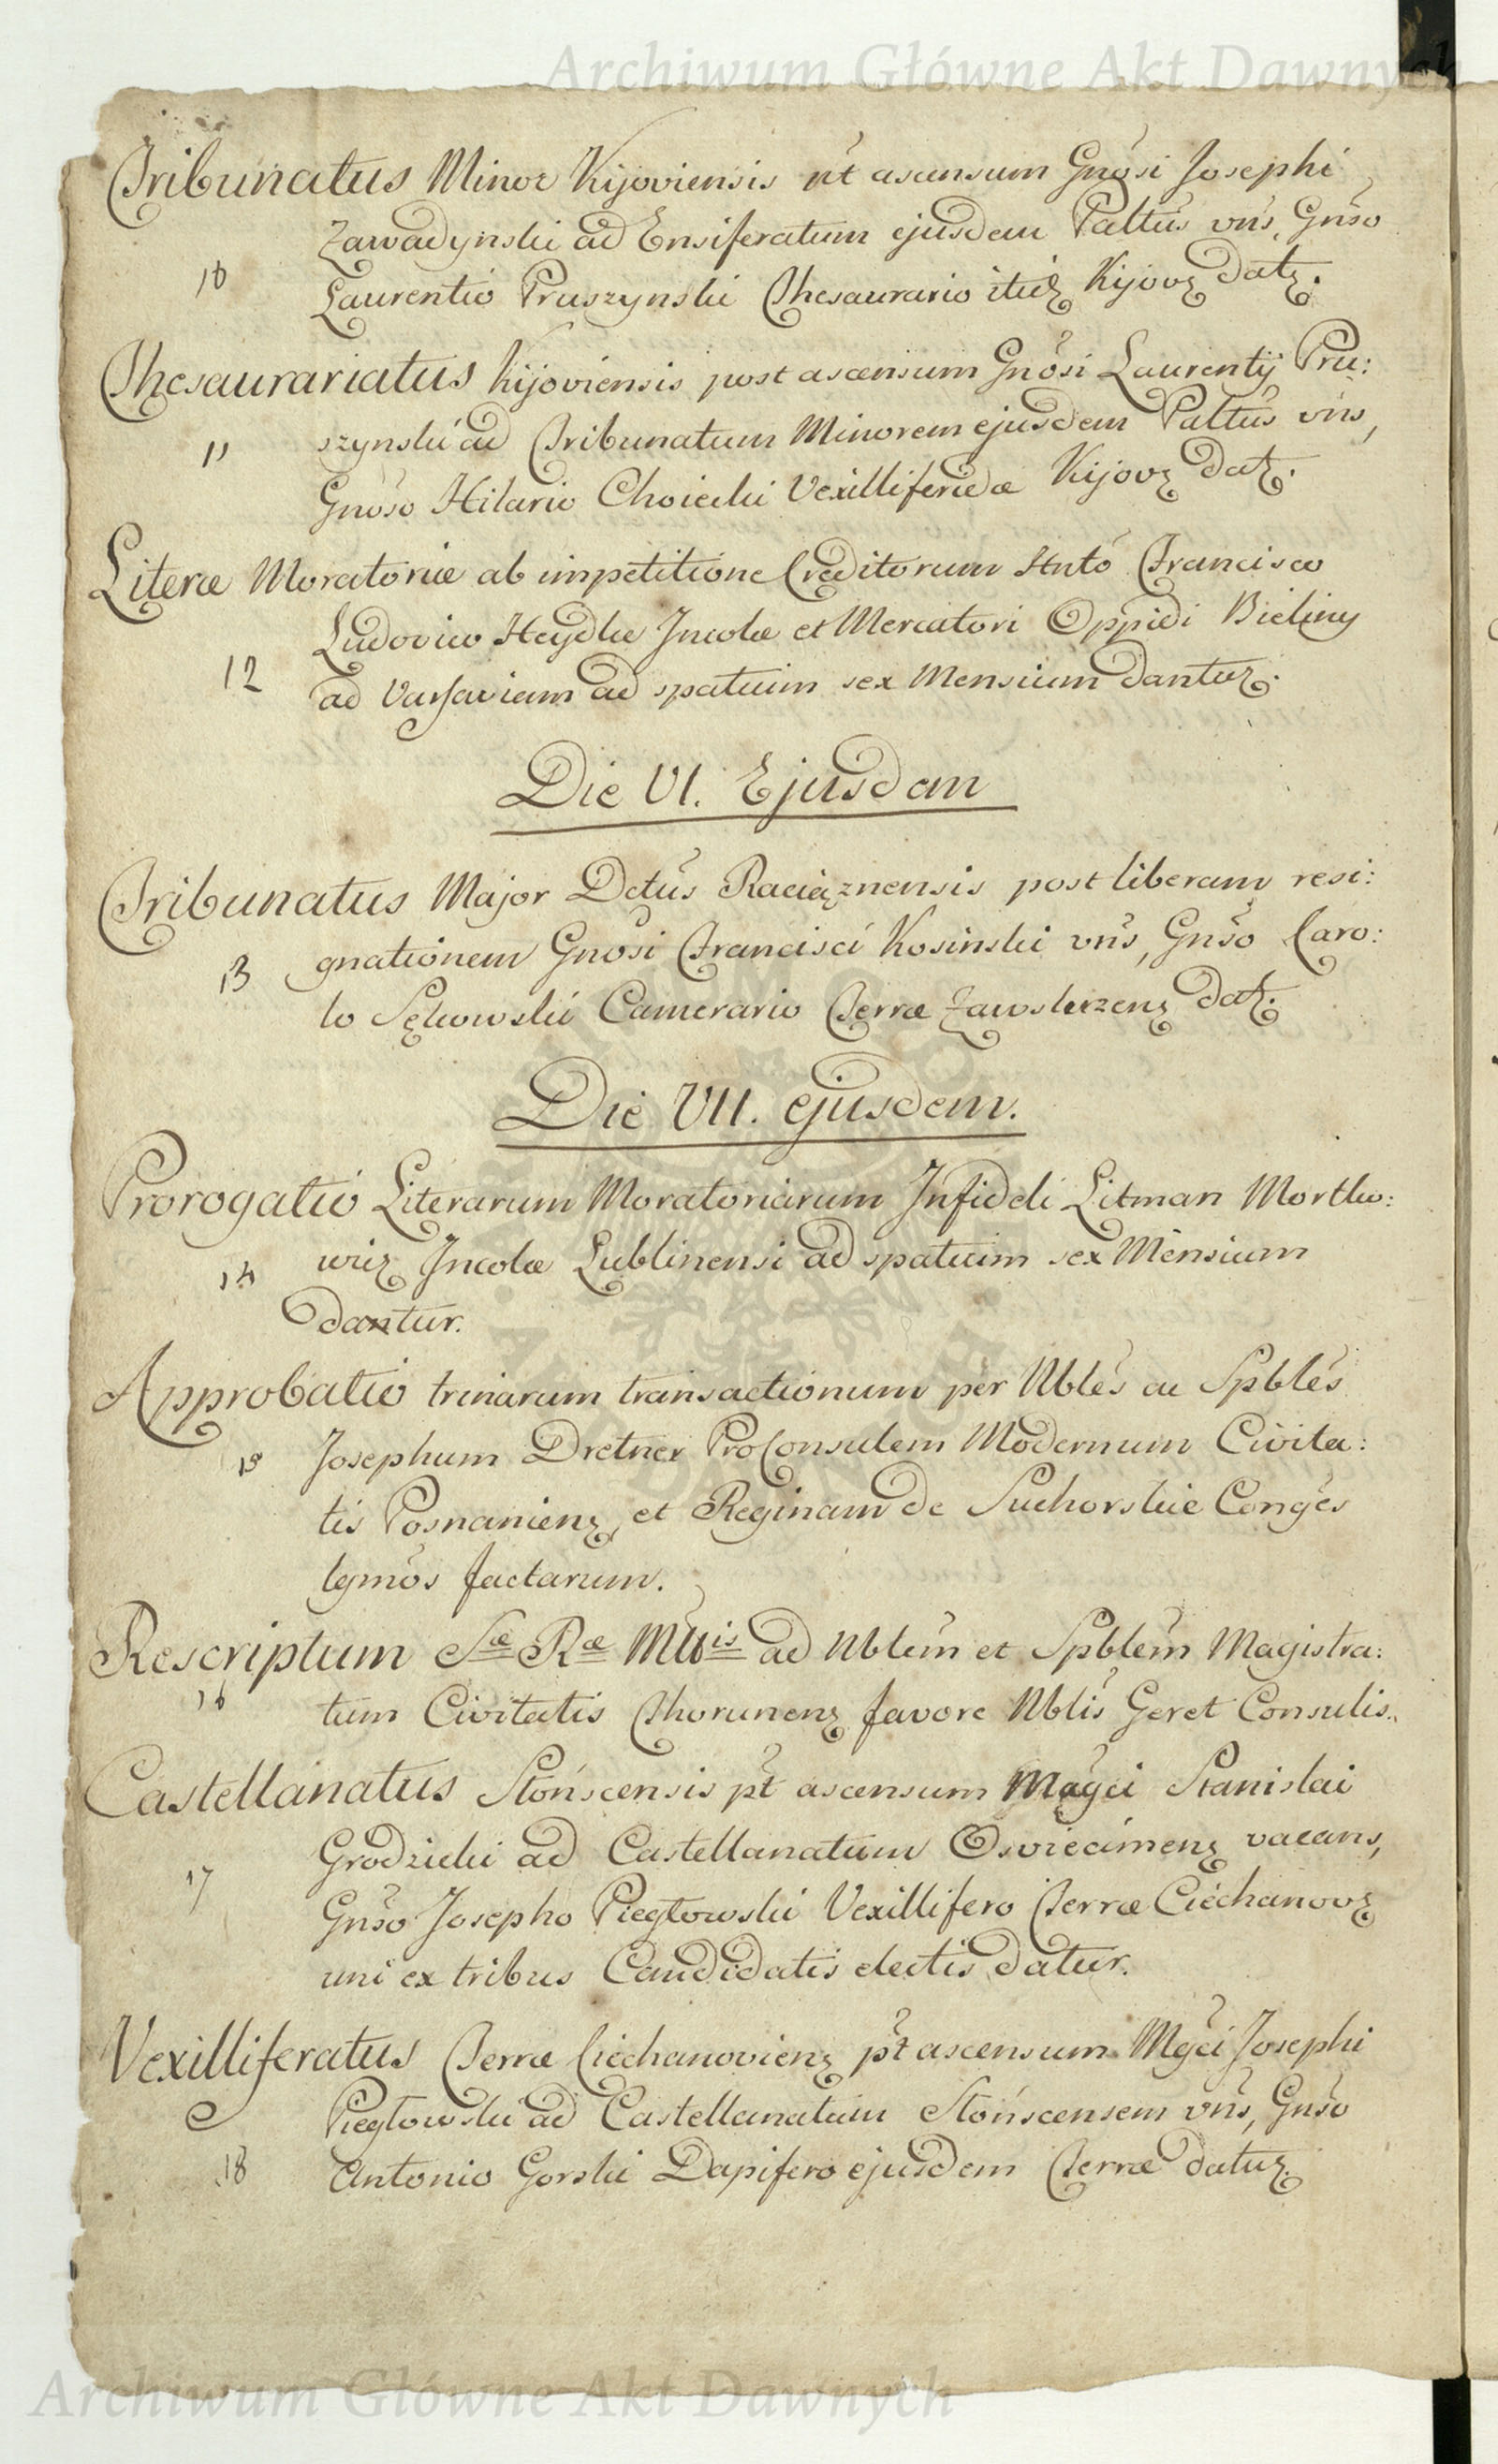 Archiwum Główne Akt Dawnych
Tribunatus Minor Kijoviensis pt ascensum Gnosi Josephi
Zawadynski ad Ensiferatum ejusdem Paltus vns, Gnso
10 Laurentio Pruszynski Thesaurario itid Kijov datz.
Thesaurariatus Kijoviensis post ascensum Gnosi Laurentij Pru:
11 szynski ad Tribunatum Minorem ejusdem Paltus vns,
Gnoso Hilario Choiecki Vexilliferidæ Kijov datz.
Literæ Moratoriæ ab impetitione Creditorum Hnto Francisco
Ludovico Heydke Incolæ et Mercatori Oppidi Bieliny
12 ad Varsaviam ad spatium sex Mensium dantur.
Die VI. Ejusdem
Tribunatus Major Dctus Raciąznensis post liberam resi:
13 gnationem Gnosi Francisci Kosinski vns, Gnso Caro:
lo Sękowski Camerario Terræ Zawskrzenz datz.
Die VII. ejusdem.
Prorogatio Literarum Moratoriarum Infideli Litman Mortko:
14 wicz Incolæ Lublinensi ad spatium sex Mensium
dantur.
Approbatio trinarum transactionum per Nbles ac Spbles
15 Josephum Dretner ProConsulem Modernum Civita:
tis Posnanienz, et Reginam de Suchorskie Conges
lgmos factarum.
Rescriptum Sæ Ræ Mttis ad Nblem et Spblem Magistra:
16 tum Civitatis Thorunenz favore Nblis Geret Consulis.
Castellanatus Słońscensis pt ascensum Magci Stanislai
Grodzicki ad Castellanatum Osviecimenz vacans,
17 Gnso Josepho Piegłowski Vexillifero Terræ Ciechanovz
uni ex tribus Candidatis electis datur.
Vexilliferatus Terræ Ciechanovienz pt ascensum Mgci Josephi
Piegłowski ad Castellanatum Słońscensem vns, Gnso
18 Antonio Gorski Dapifero ejusdem Terræ datur.
Archiwum Główne Akt Dawnych